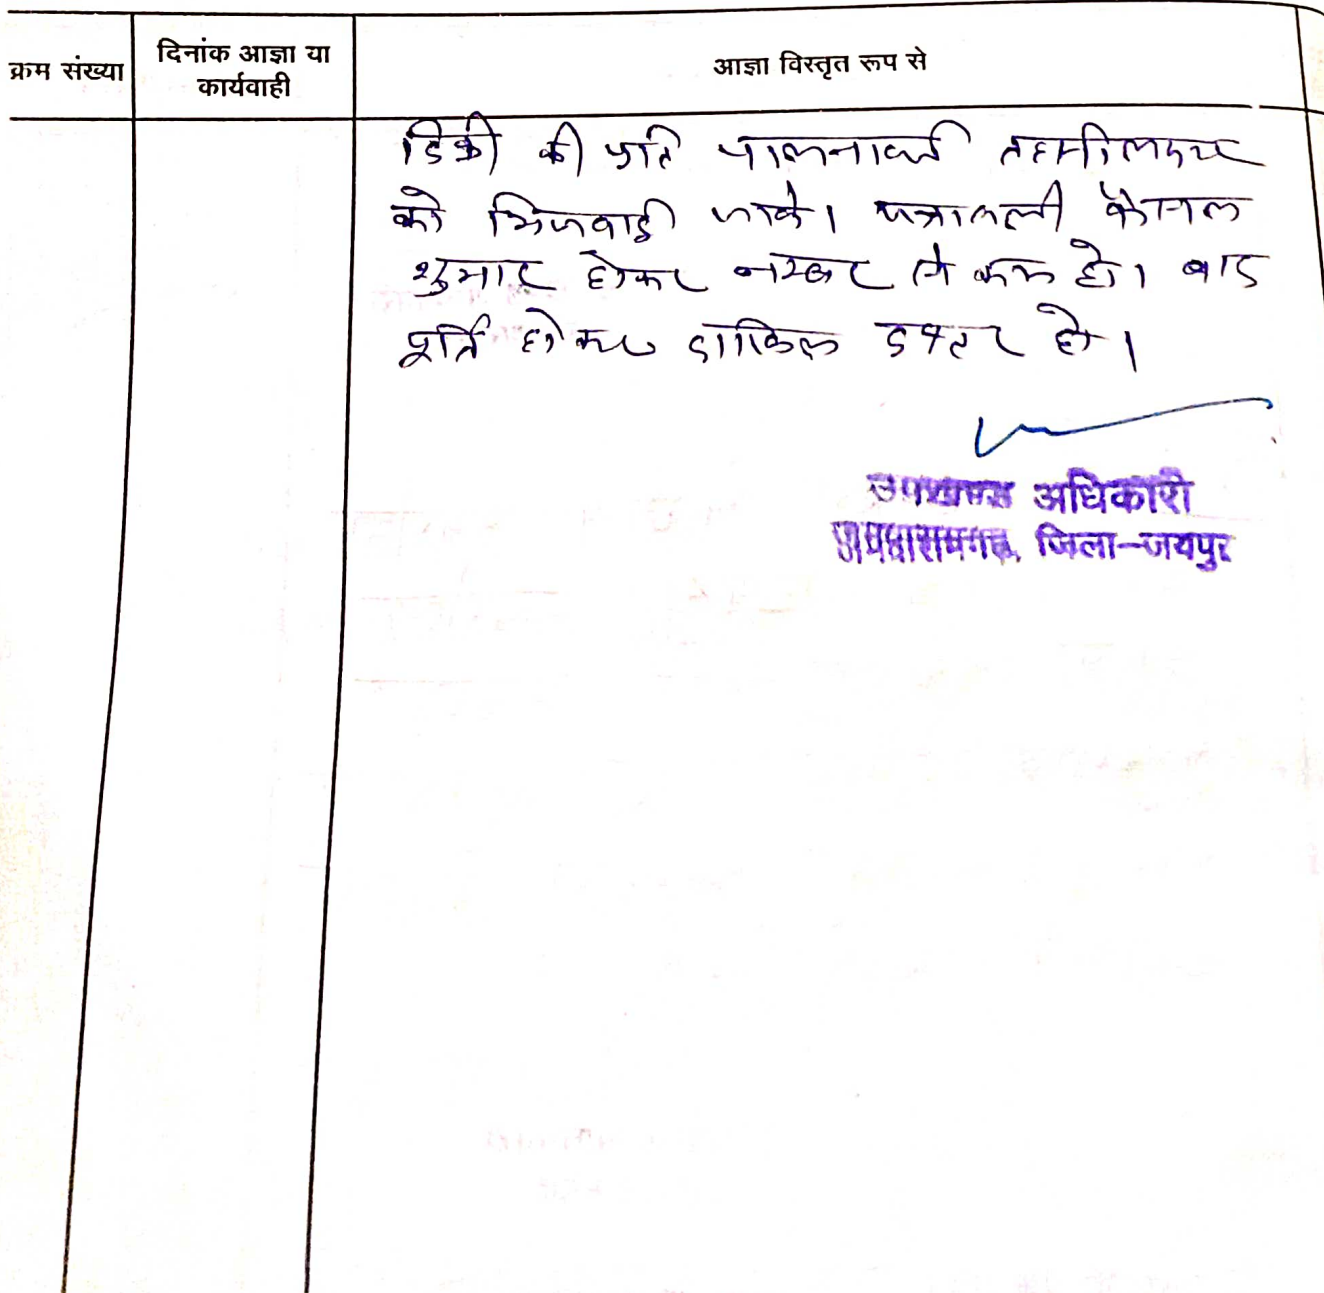 क्रम संख्या
दिनांक आज्ञा या
कार्यवाही
आज्ञा विस्तृत रूप से
डिक्री की प्रति पालनार्थ तहसीलदार
को भिजवाई जावे। पत्रावली फैसल
शुमार होकर नम्बर से कम हो। बाद
पूर्ति होकर दाखिल दफ्तर हो।
उपखण्ड अधिकारी
जमवारामगढ़, जिला-जयपुर